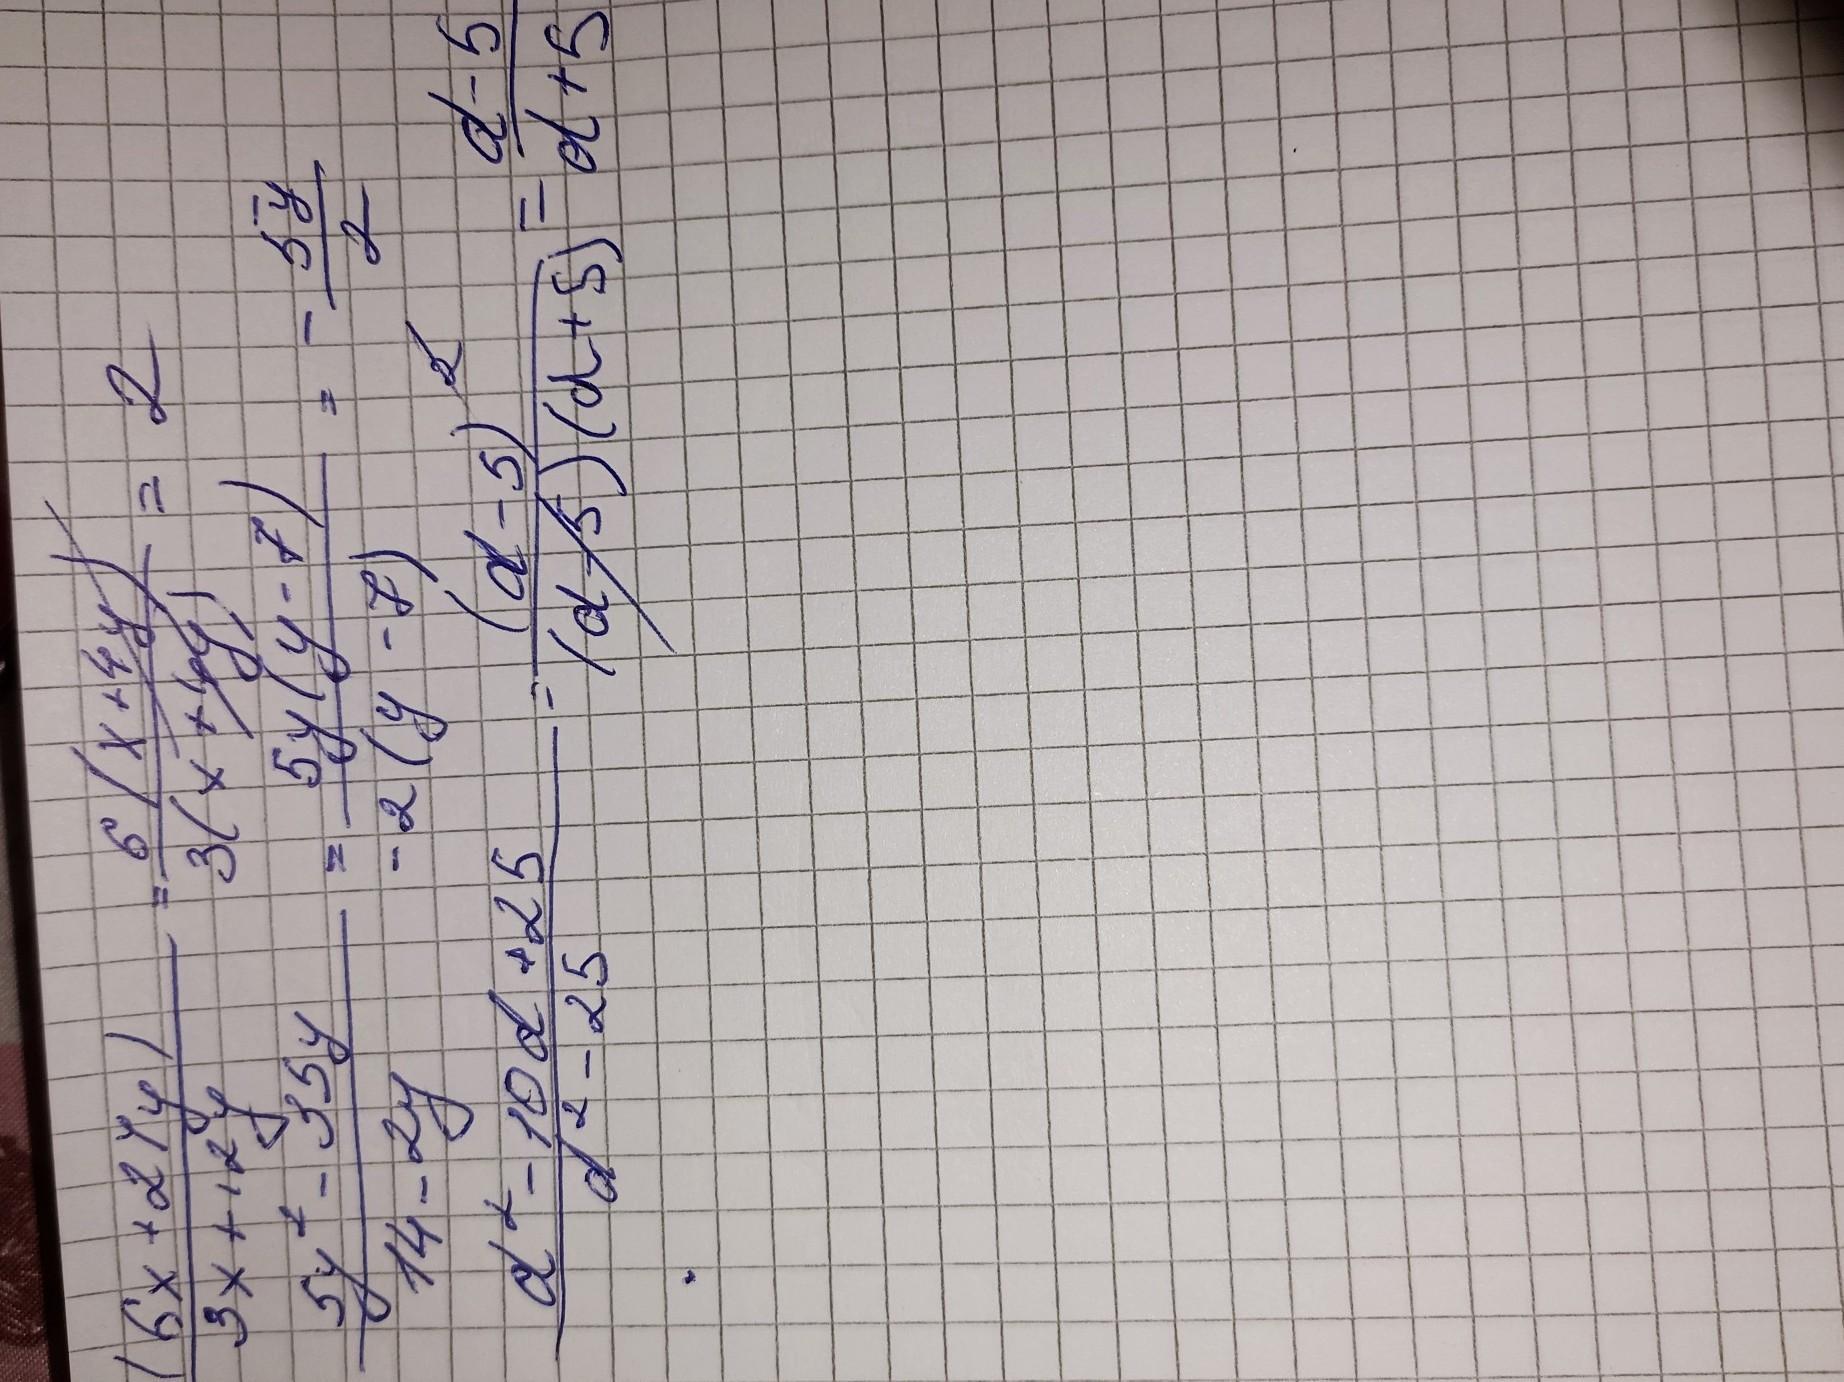 (6x+24y)/(3x+12y) = 6(x+4y)/3(x+4y) = 2
(5y²-35y)/(14-2y) = 5y(y-7)/-2(y-7) = -5y/2
(d²-10d+25)/(d²-25) = (d-5)²/(d-5)(d+5) = (d-5)/(d+5)